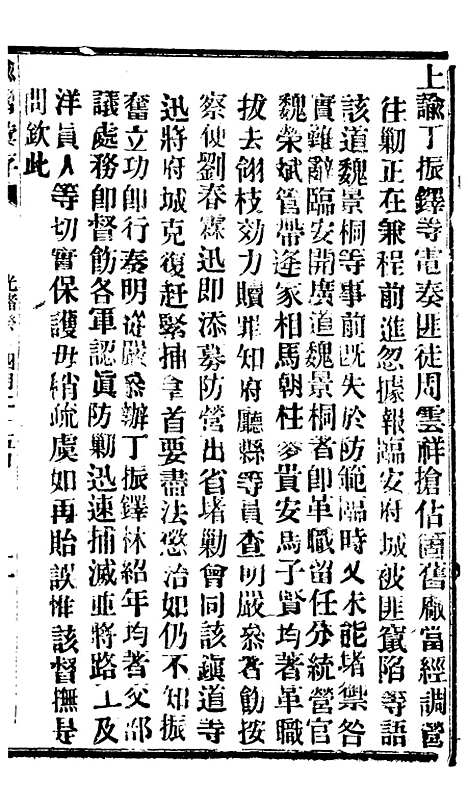 上諭丁振鐸等電奏匪徒周雲祥搶佔箇舊廠當經調營
往勦正在兼程前進忽據報臨安府城被匪竄陷等語
該道魏景桐等事前既失於防範臨時又未能堵禦咎
實難辭臨安開廣道魏景桐著即革職留任分統營官
魏榮斌管帶逄家相馬朝柱麥貴安馬子賢均著革職
拔去翎枝効力贖罪知府廳縣等員查明嚴叅著飭按
察使劉春霖迅即添募防營出省堵勦會同該鎮道等
迅將府城克復赶緊捕拿首要盡法懲治如仍不知振
奮立功即行奏明從嚴叅辦丁振鐸林紹年均著交部
議處務即督飭各軍認眞防勦迅速捕滅並將路工及
洋員人等切實保護毋稍疏虞如再貽誤惟該督撫是
問欽此